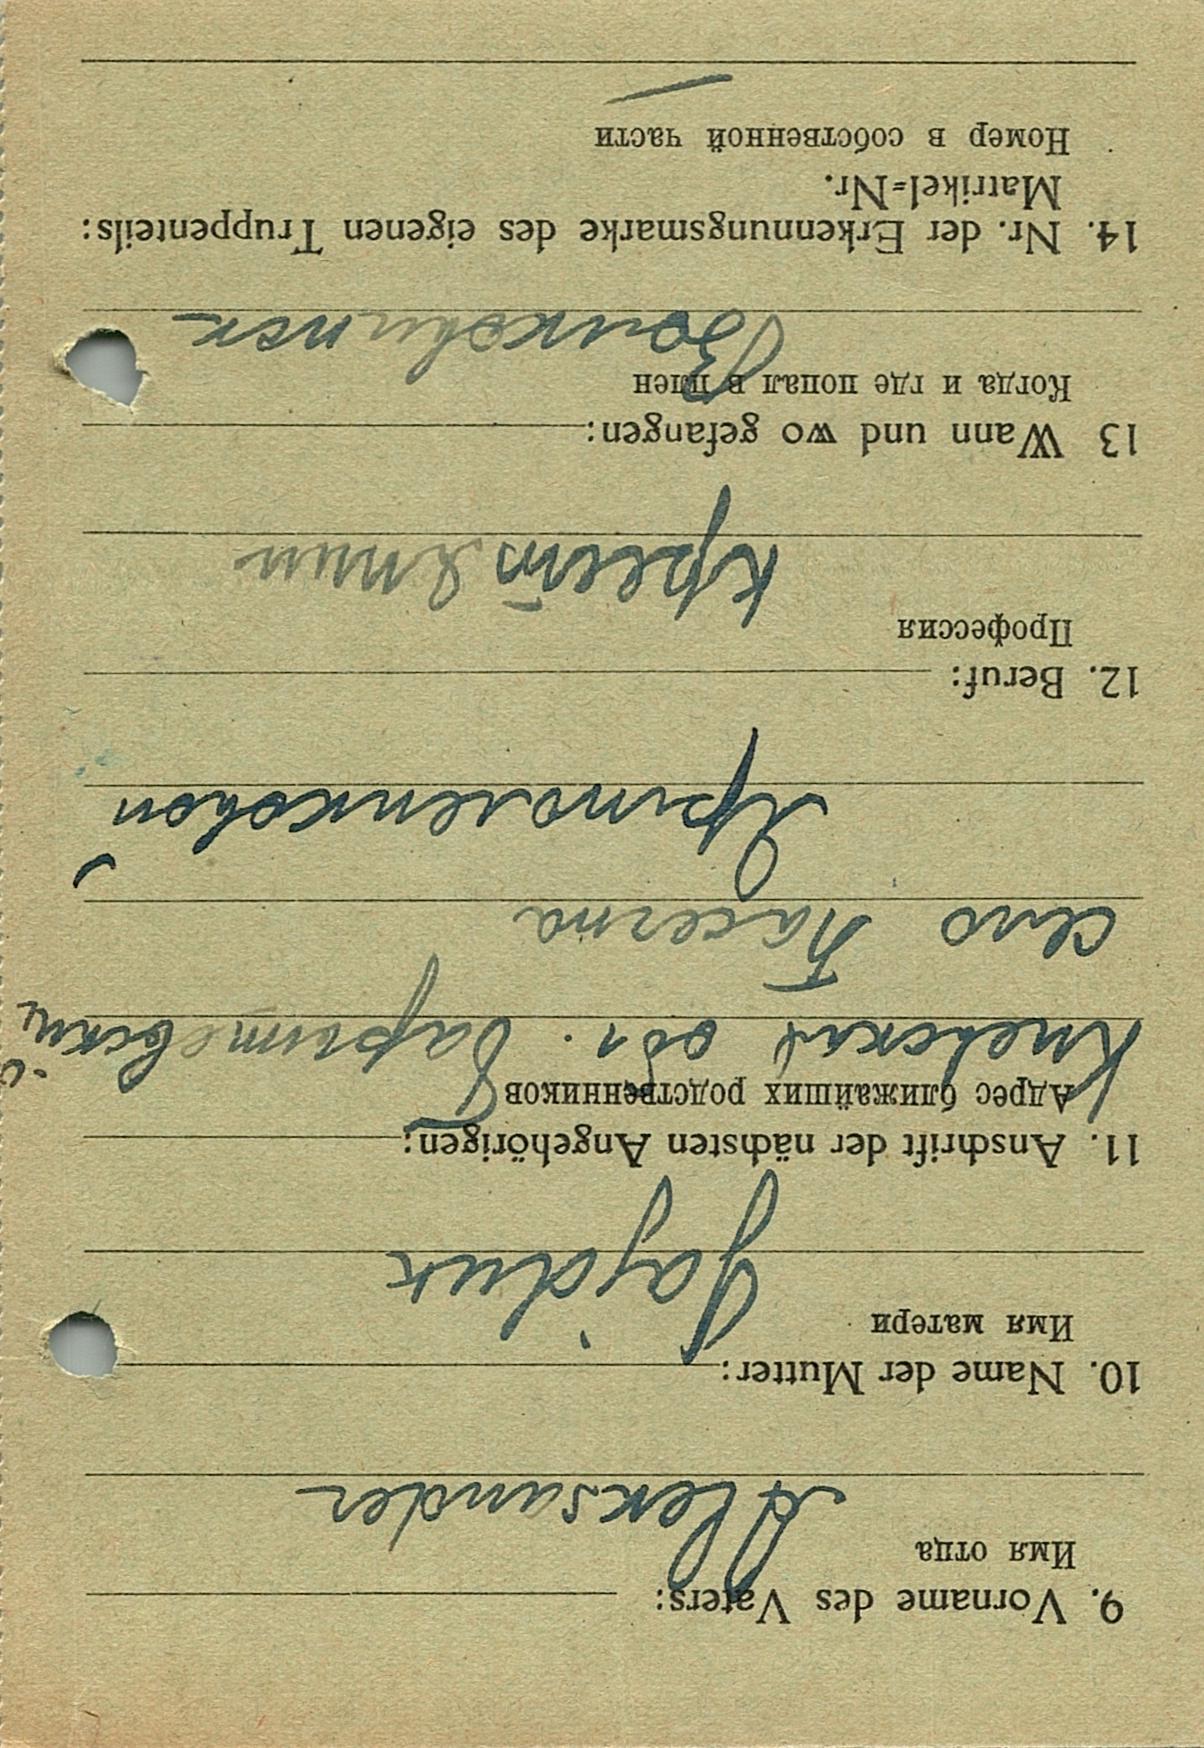 9. Vorname des Vaters:
Имя отца
Aleksander
10. Name der Mutter:
Имя матери
Gajduk
11. Anschrift der nächsten Angehörigen:
Адрес ближайших родственников
Киевская обл.
село
12. Beruf:
Профессия
крестянин
13 Wann und wo gefangen:
Когда и где попал в плен
Волковитск
14. Nr. der Erkennungsmarke des eigenen Truppenteils:
Matrikel=Nr.
Номер в собственной части